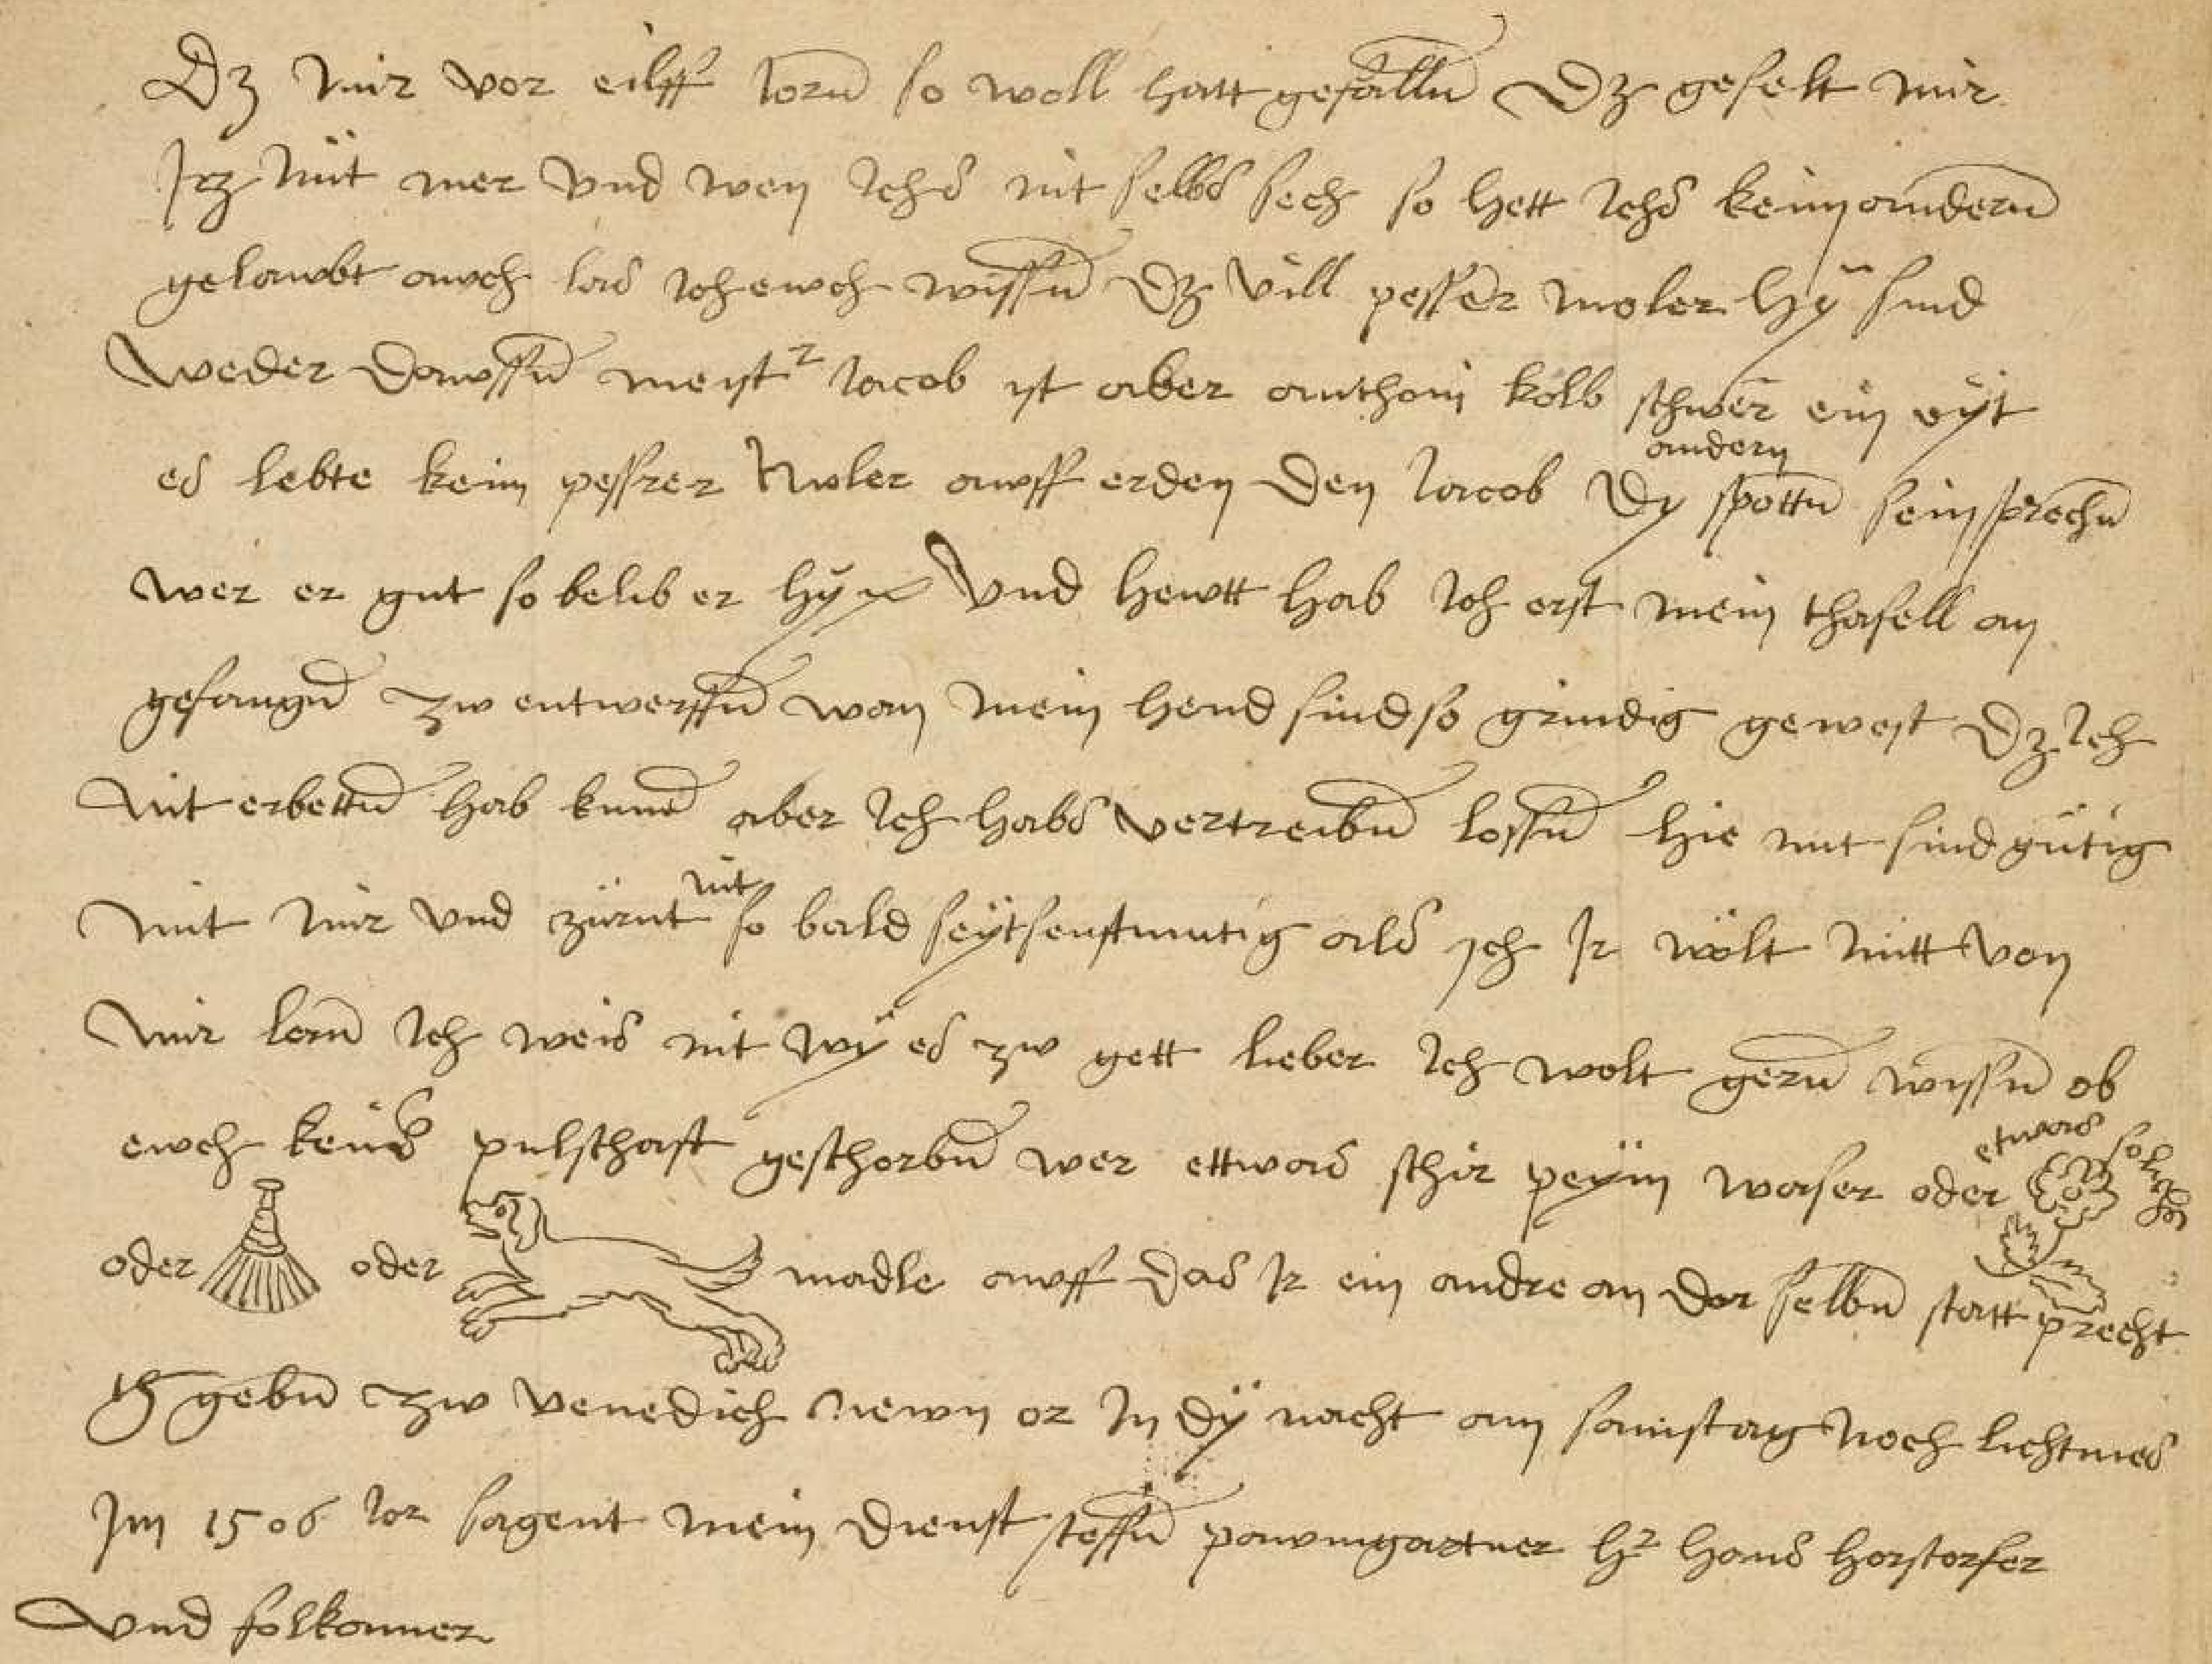 Dz mir vor eilff Jorn so woll hatt gefalln Dz gefelt mir
Jcz nüt mer vnd wen Jchs nit selbs sech so hett Jchs keim anderen
gelawbt awch las Jch ewch wissn Dz vill pesser moler hÿ sind
weder dawssn meistr Jacob ist aber anthoni kolb schwer ein eÿt
es lebte kein pessrer moler awff erden den Jacob Dy andern spottn sein sprechn
wer er gut so belib er hÿ x vnd hewtt hab Jch erst mein thafell an
gefangn zw entwerffn wan mein hend sind so grindig gewest Dz Jch
nit erbettn hab kunen aber Jch habs vertreibn lossn hie mit sind gütig
mit mir vnd zürnt nit so bald seÿt senftmutig als Jch Jr wölt nütt von
mir lern Jch weis nit wÿ es zw gett lieber Jch wolt gern wissn ob
ewch keins pulschaft geschorbn wer ettwas schir peÿm waser oder etwas solichs
oder oder madle awff das Jr ein andre an der selbn statt precht
gebn zw venedich newn or Jn dÿ nacht am samstag noch lichtmes
Jm 1506 Jor sagent mein dienst steffn pawmgartner hr hans horstorfer
vnd folkamer